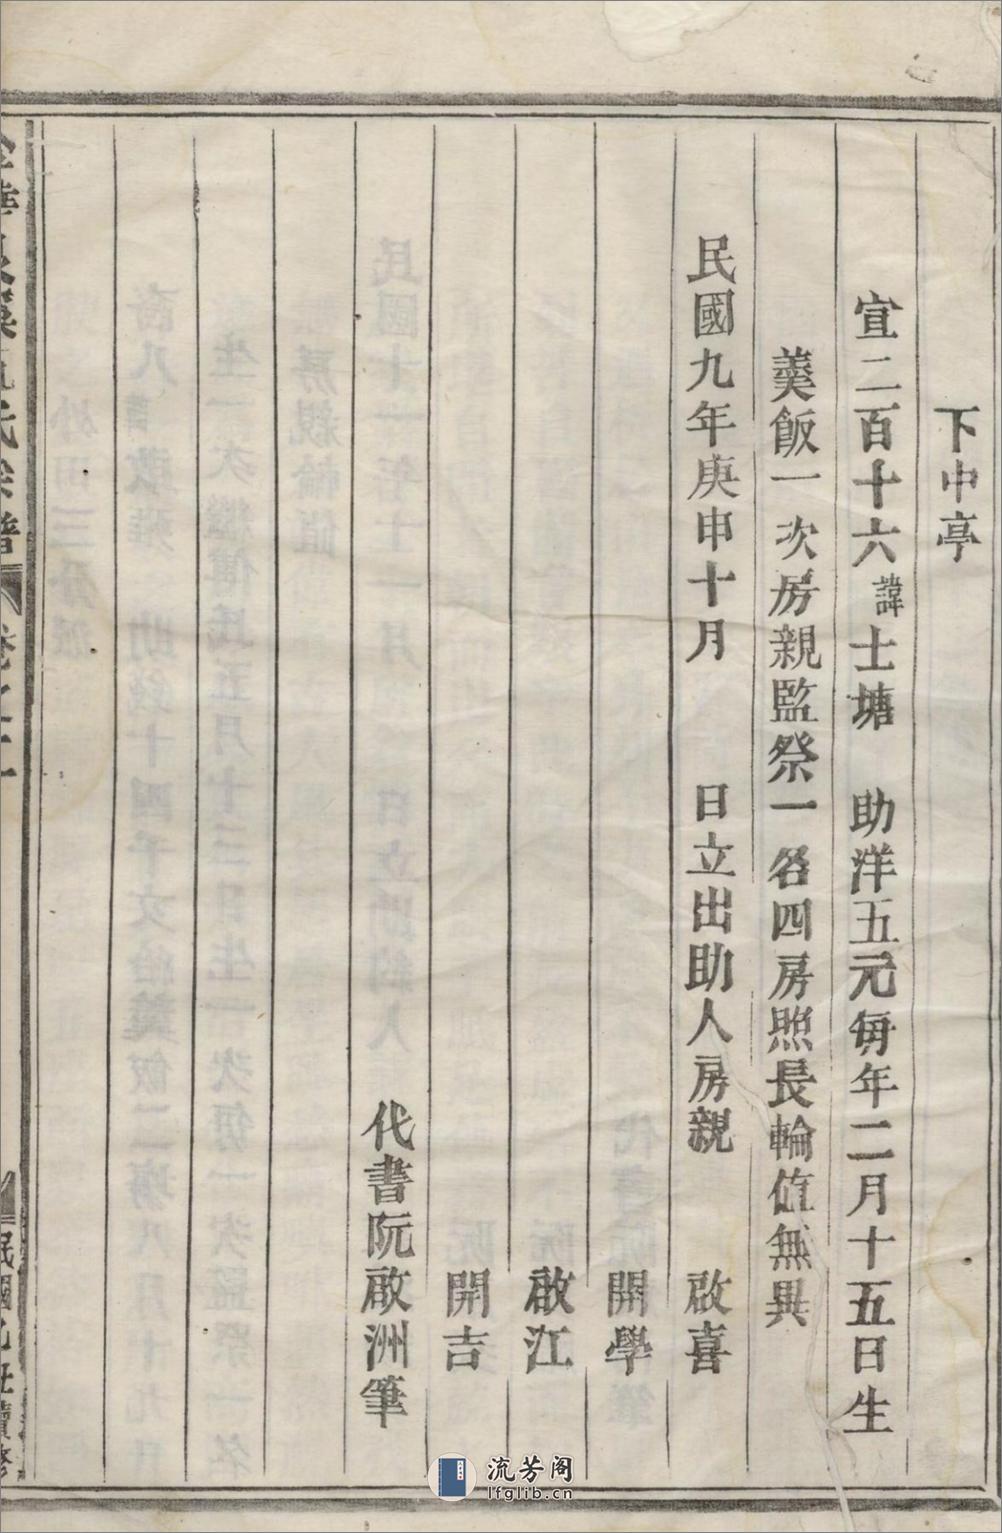 下中亭
宣二百十六諱士塘　助洋五元每年二月十五日生
羹飯一次房親監祭一名四房照長輪值無異
民國九年庚申十月　日立出助人房親　啟喜
開學
啟江
開吉
代書阮啟洲筆
氏宗譜
民國己巳續修
流芳阁
lfglib.cn